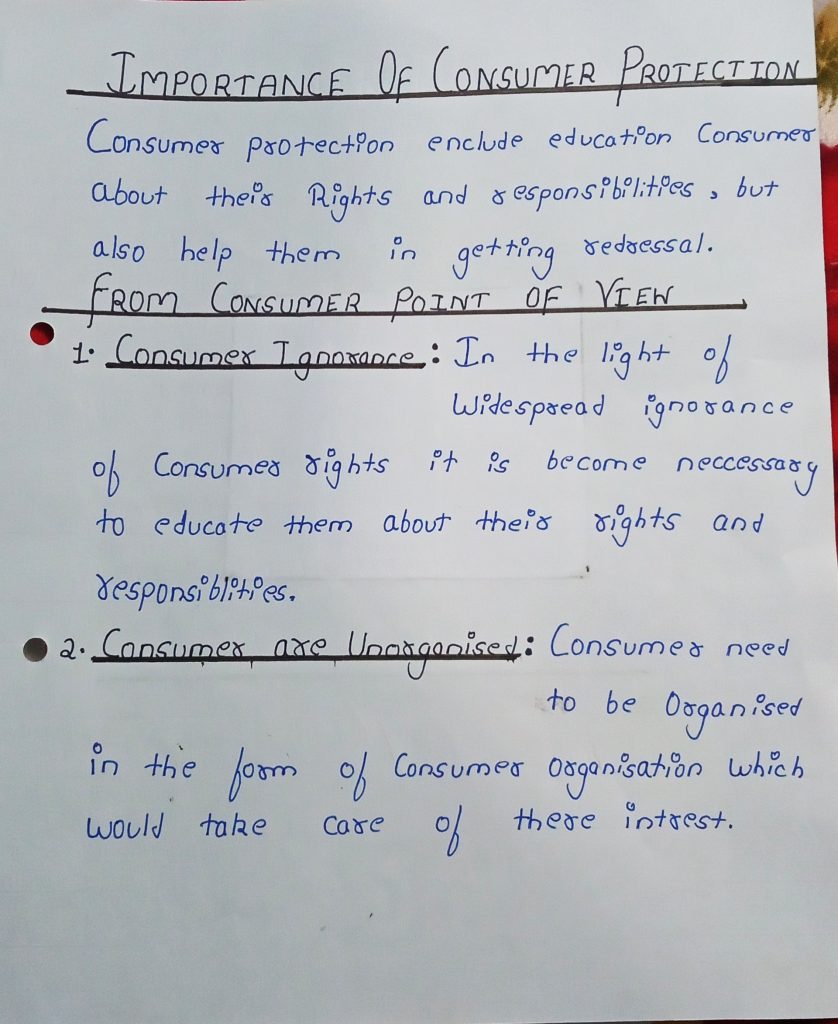 IMPORTANCE OF CONSUMER PROTECTION
Consumer protection enclude education Consumer
about their Rights and responsibilities, but
also help them in getting redressal.
FROM CONSUMER POINT OF VIEW
1. Consumer Ignorance: In the light of
Widespread ignorance
of Consumer rights it is become neccessary
to educate them about their rights and
responsiblities.
2. Consumer are Unorganised: Consumer need
to be Organised
in the form of Consumer organisation which
would take care of there intrest.